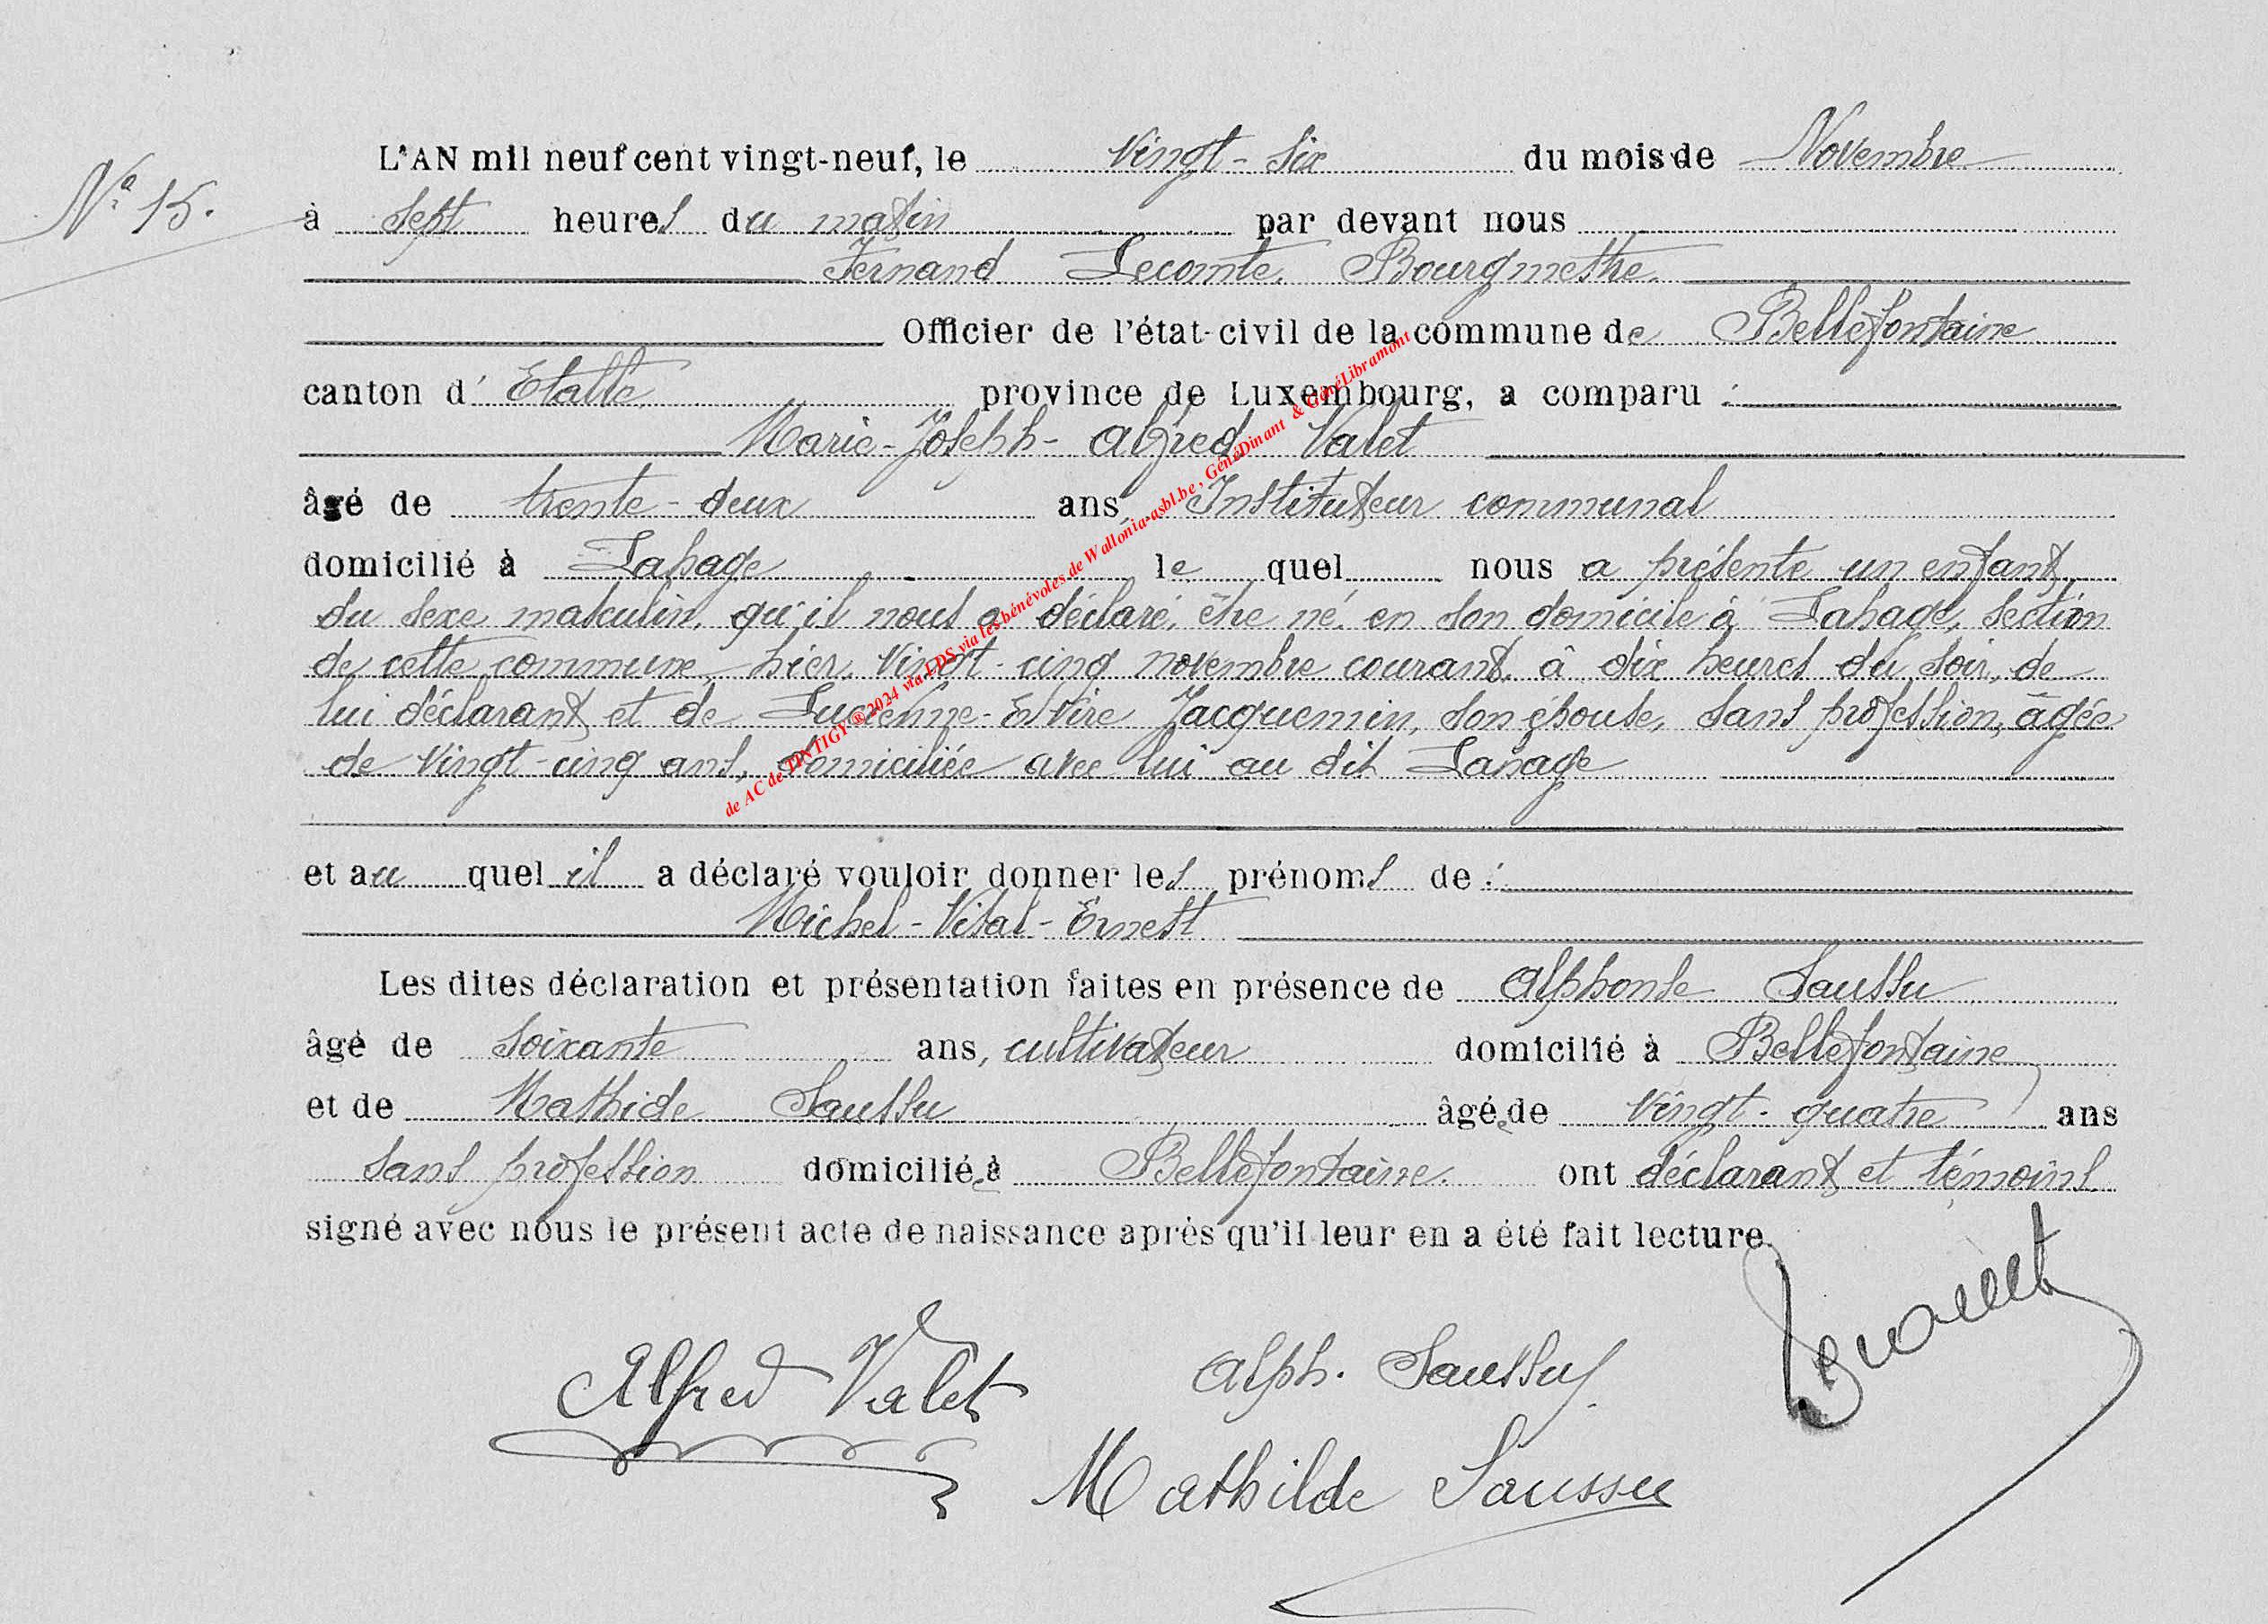 L'AN mil neuf cent vingt-neuf, le vingt-six du mois de Novembre
Nº 15.
à sept heures du matin par devant nous
Fernand Lecomte, Bourgmestre
Officier de l'état-civil de la commune de Bellefontaine
canton d'Etalle province de Luxembourg, a comparu :
Marie-Joseph-Alfred Valet
âgé de trente-deux ans, Instituteur communal
domicilié à Lahage lequel nous a présenté un enfant
du sexe masculin, qu'il nous a déclaré être né en son domicile à Lahage, section
de cette commune, hier, vingt-cinq novembre courant, à dix heures du soir, de
lui déclarant et de Lucienne-Elvire Jacquemin, son épouse, sans profession, âgée
de vingt-cinq ans, domiciliée avec lui au dit Lahage
et au quel il a déclaré vouloir donner les prénoms de :
Michel-Vital-Ernest
Les dites déclaration et présentation faites en présence de Alphonse Saussu
âgé de soixante ans, cultivateur domicilié à Bellefontaine
et de Mathide Saussu âgée de vingt-quatre ans
sans profession domiciliée à Bellefontaine. ont déclarant et témoins
signé avec nous le présent acte de naissance après qu'il leur en a été fait lecture.
Alfred Valet
Alph. Saussu
Mathilde Saussu
de AC de TINTIGY ® 2024 via LDS via les bénévoles de Wallonia-asbl.be , GénéDinant & GénéLibramont